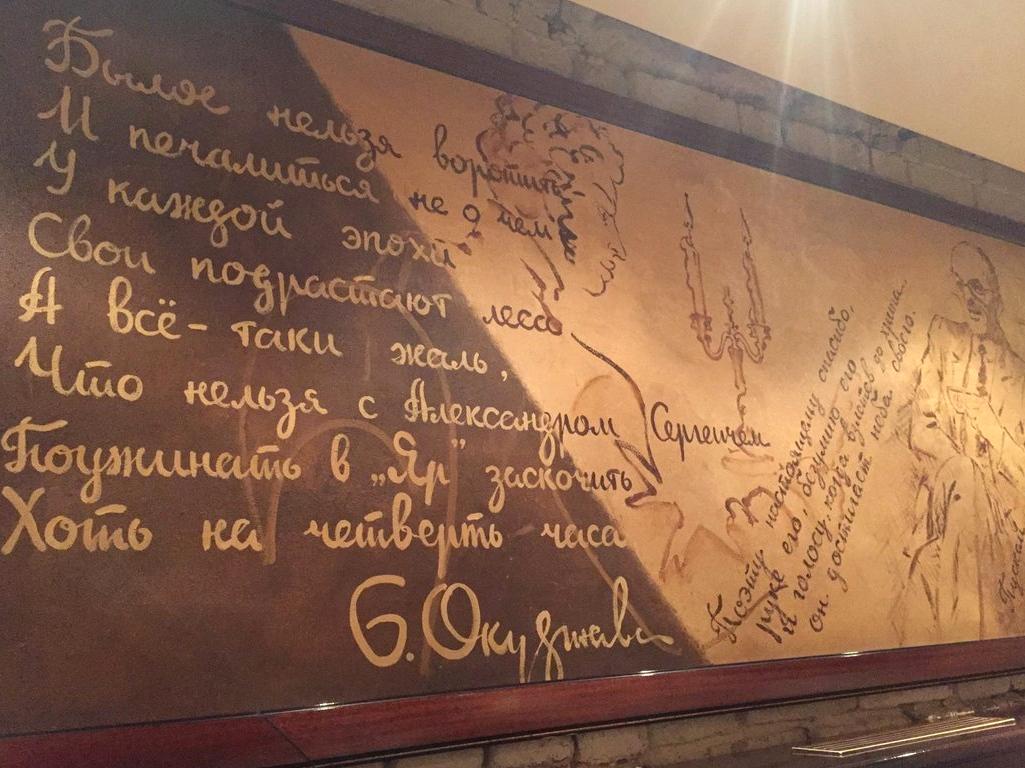 Былое нельзя воротить
И печалиться не о чем
У каждой эпохи
Свои подрастают леса
А всё-таки жаль,
Что нельзя с Александром Сергеичем
Поужинать в „Яр" заскочить
Хоть на четверть часа
Б. Окуджава
Поэту настоящему спасибо,
руке его, безумию его
и голосу, когда взлетев до хрипа
он достигает неба своего.